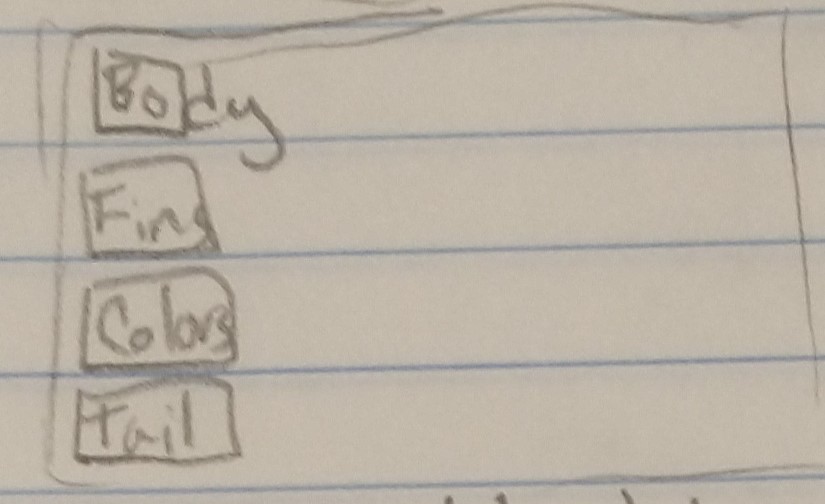 Body
Fins
Colors
Tail